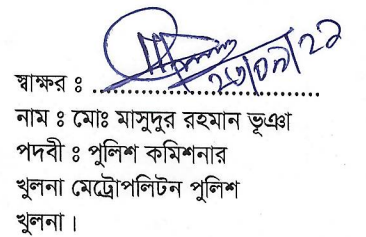 স্বাক্ষর ঃ ........................................
নাম ঃ মোঃ মাসুদুর রহমান ভূঞা
পদবী ঃ পুলিশ কমিশনার
খুলনা মেট্রোপলিটন পুলিশ
খুলনা।